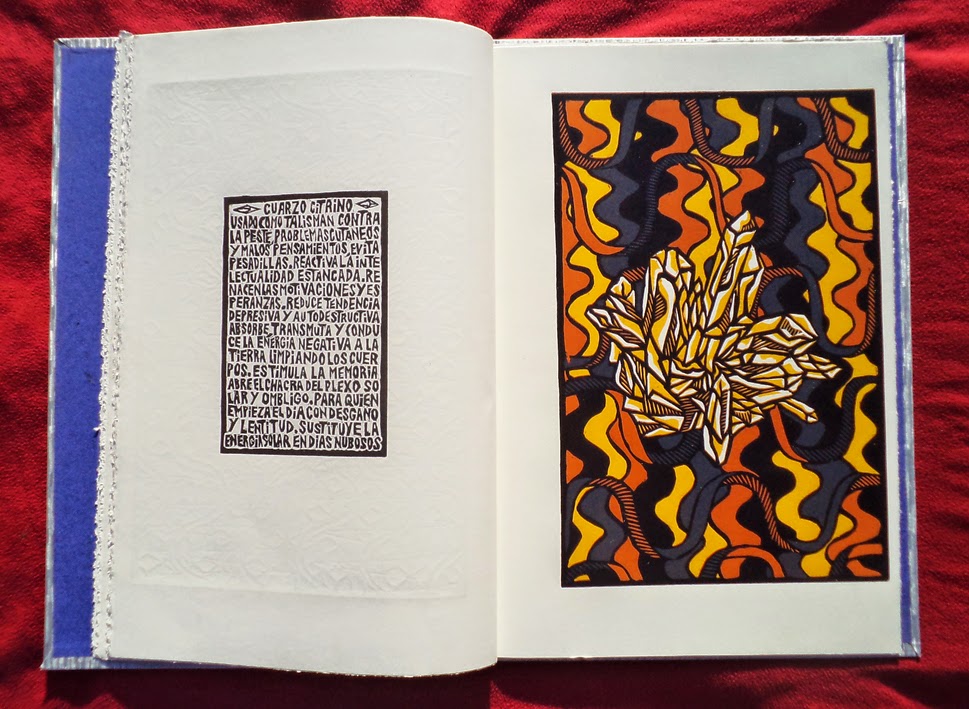 CUARZO CITRINO
USADO COMO TALISMAN CONTRA
LA PESTE, PROBLEMAS CUTANEOS
Y MALOS PENSAMIENTOS, EVITA
PESADILLAS. REACTIVA LA INTE
LECTUALIDAD ESTANCADA. RE
NACEN LAS MOTIVACIONES Y ES
PERANZAS. REDUCE TENDENCIA
DEPRESIVA Y AUTODESTRUCTIVA
ABSORBE, TRANSMUTA Y CONDU
CE LA ENERGIA NEGATIVA A LA
TIERRA LIMPIANDO LOS CUER
POS. ESTIMULA LA MEMORIA
ABRE EL CHACRA DEL PLEXO SO
LAR Y OMBLIGO. PARA QUIEN
EMPIEZA EL DIA CON DESGANO
Y LENTITUD. SUSTITUYE LA
ENERGIA SOLAR EN DIAS NUBOSOS